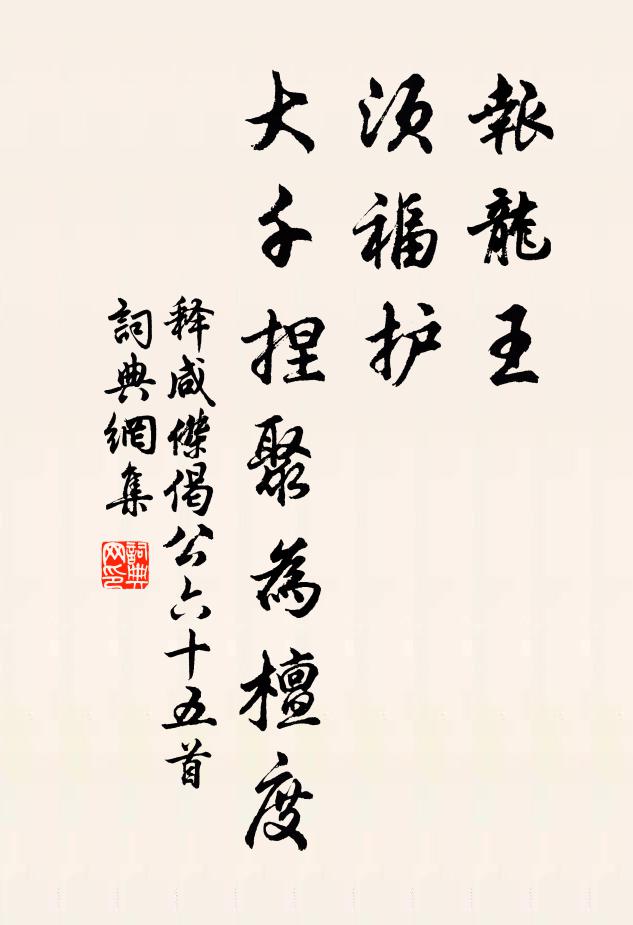 報龍王
須福护
大千捏聚為檀度
释咸傑偈公六十五首
詞典網集
詞典网印